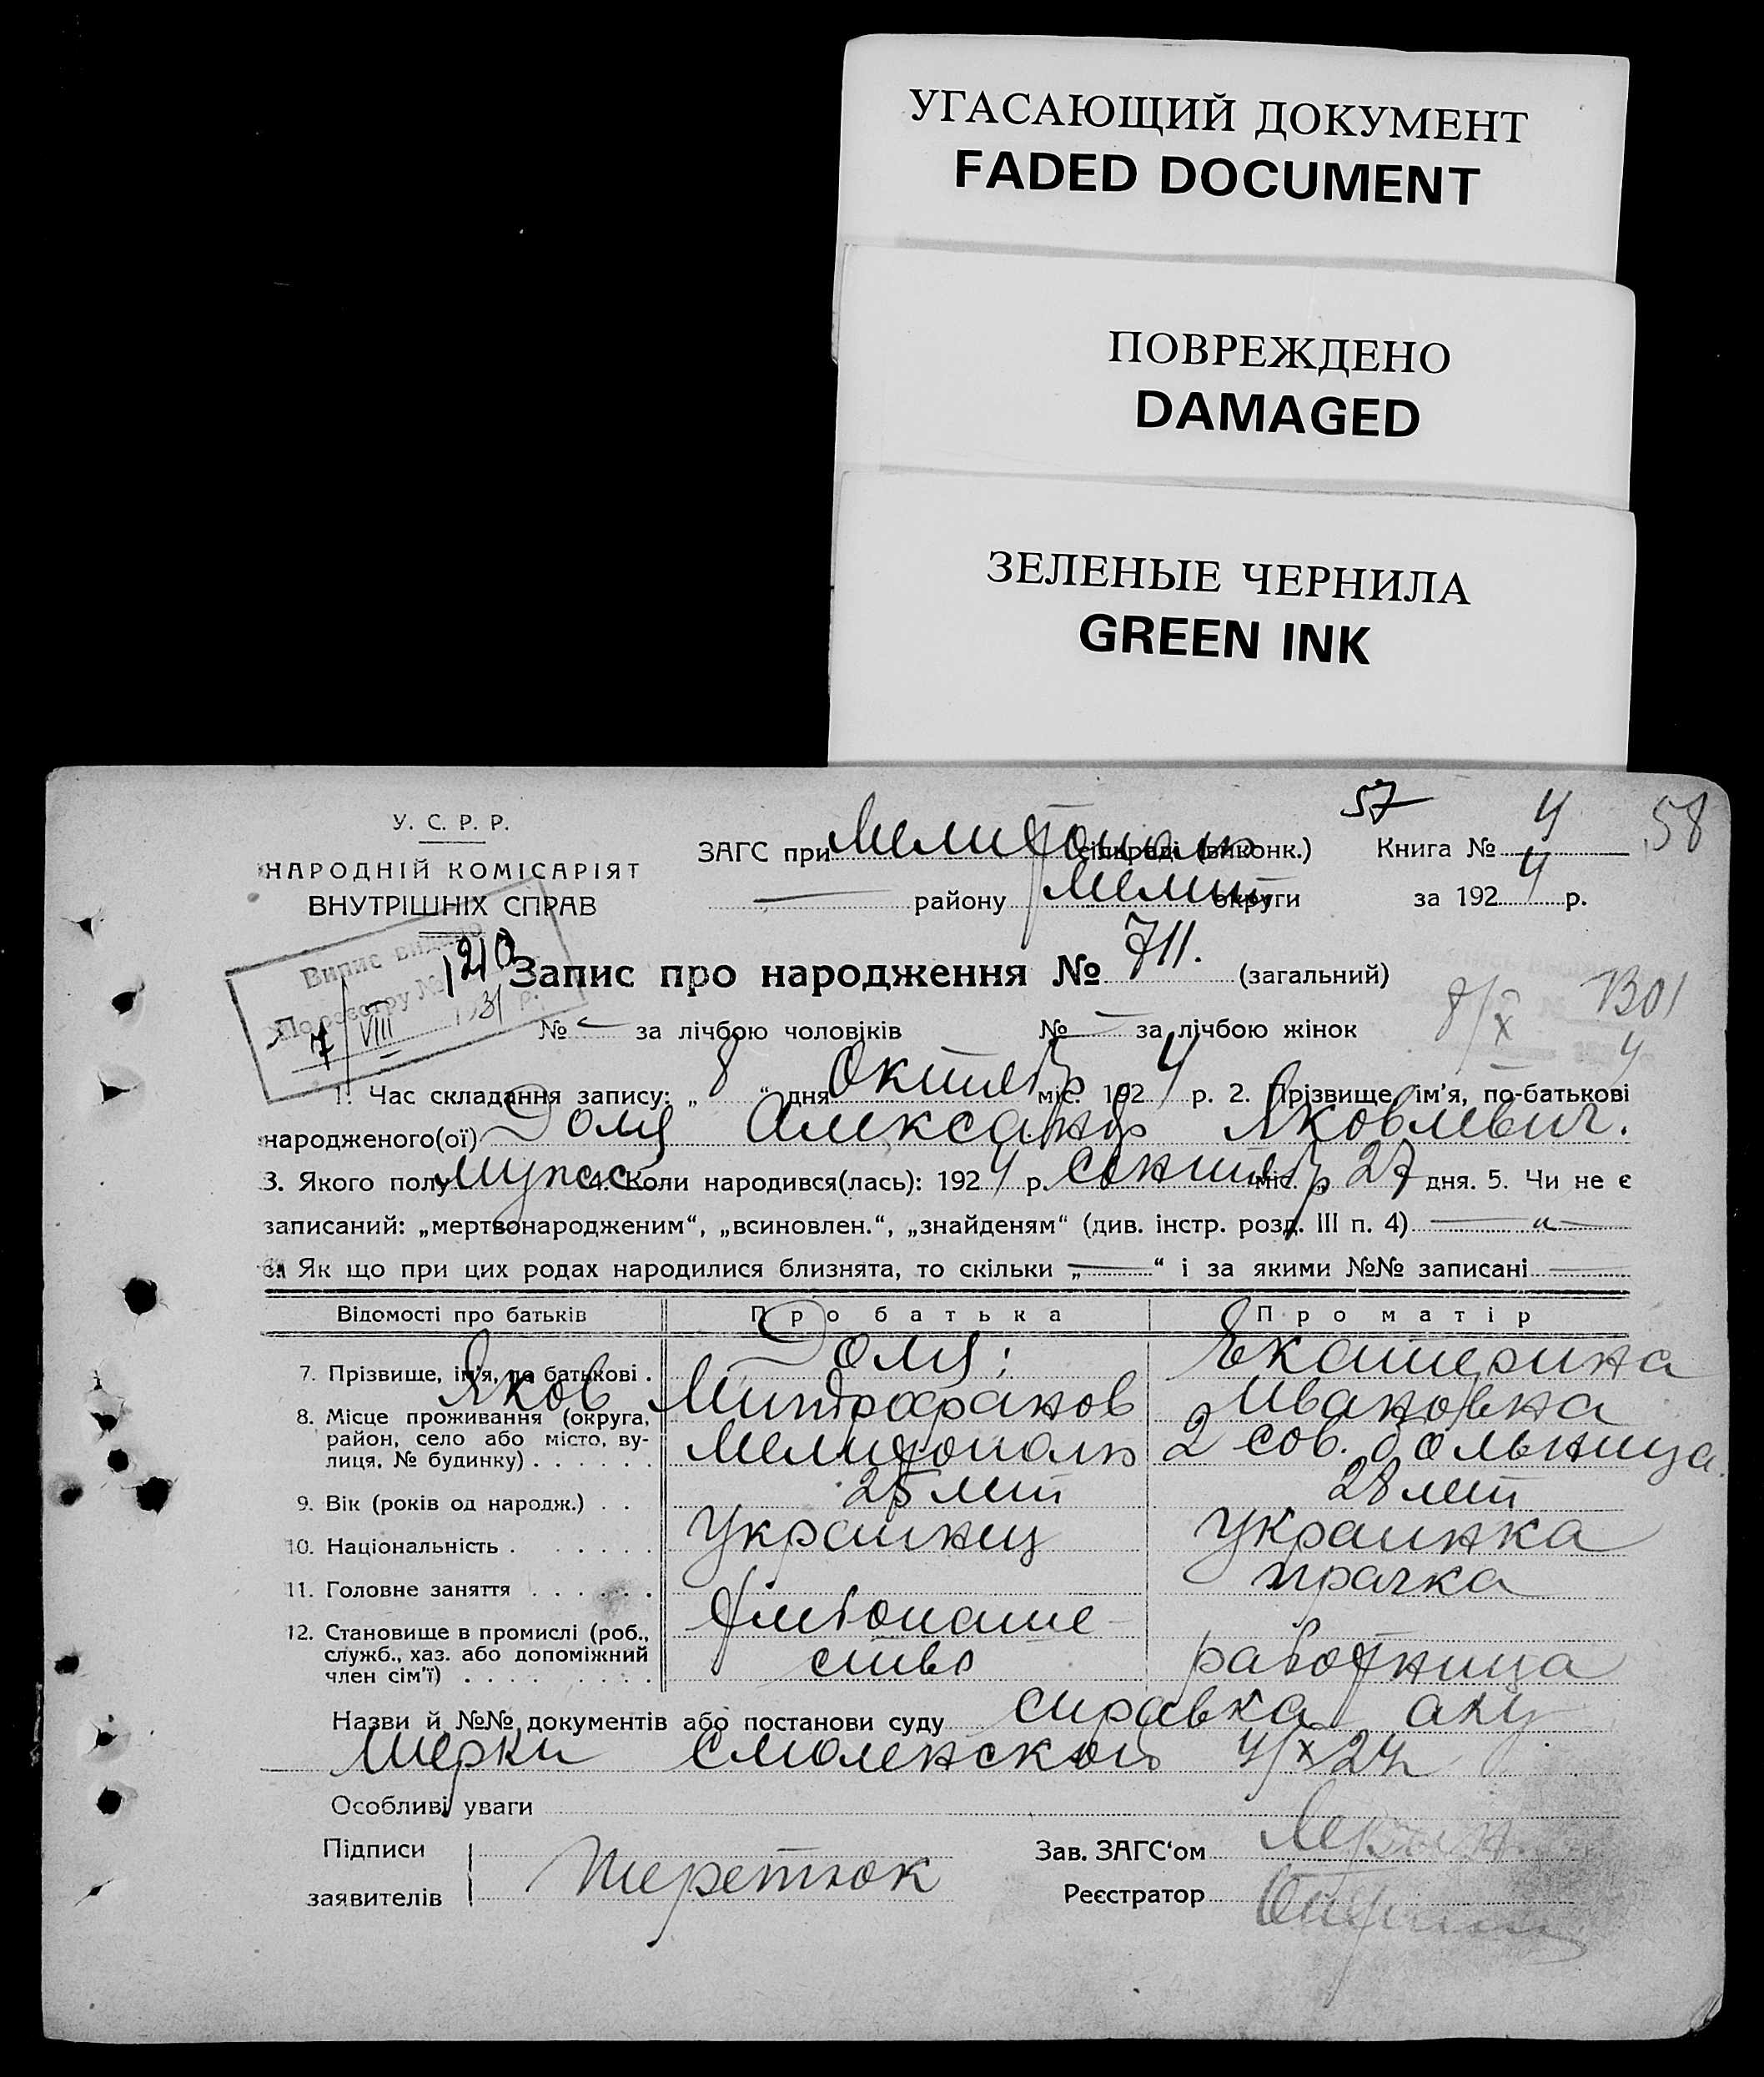 УГАСАЮЩИЙ ДОКУМЕНТ
FADED DOCUMENT
ПОВРЕЖДЕНО
DAMAGED
ЗЕЛЕНЫЕ ЧЕРНИЛА
GREEN INK
57 58
У. С. Р. Р.
НАРОДНІЙ КОМІСАРІЯТ
ВНУТРІШНІХ СПРАВ
ЗАГС при Мелитополь сільраді (виконк.) Книга № 4
району Мелит округи за 1924 р.
Випис видано
По реєстру № 1210
7/VIII 1931 р.
Запис про народження № 711. (загальний)
№ — за лічбою чоловіків № — за лічбою жінок
8/X 1301
4
1. Час складання запису: „8“ дня Октябр міс. 1924 р. 2. Прізвище, ім'я, по-батькові
народженого(ої) Доля Александр Яковлевич.
3. Якого полу мужс 4. Коли народився(лась): 1924 р. Сентябр міс. „ 27 дня. 5. Чи не є
записаний: „мертвонародженим“, „всиновлен.“, „знайденям“ (див. інстр. розд. III п. 4) — „ —
6. Як що при цих родах народилися близнята, то скільки „—“ і за якими №№ записані —
Відомості про батьків Про батька Про матір
7. Прізвище, ім'я, по батькові . Доля; Екатерина
Яков Митрофанов Ивановна
8. Місце проживання (округа, район, село або місто, вулиця, № будинку) . . . . . . Мелитополь 2 сов. больница.
9. Вік (років од народж.) . . 25 лет 28 лет
10. Національність . . . . . . Украинец Украинка
11. Головне заняття . . . . . . прачка
12. Становище в промислі (роб., служб., хаз. або допоміжний член сім'ї) . . . . . . . . работница
Назви й №№ документів або постанови суду справка аку
шерки Смоленской 4/X 24
Особливі уваги
Підписи
заявителів Шеретюк
Зав. ЗАГС'ом
Реєстратор